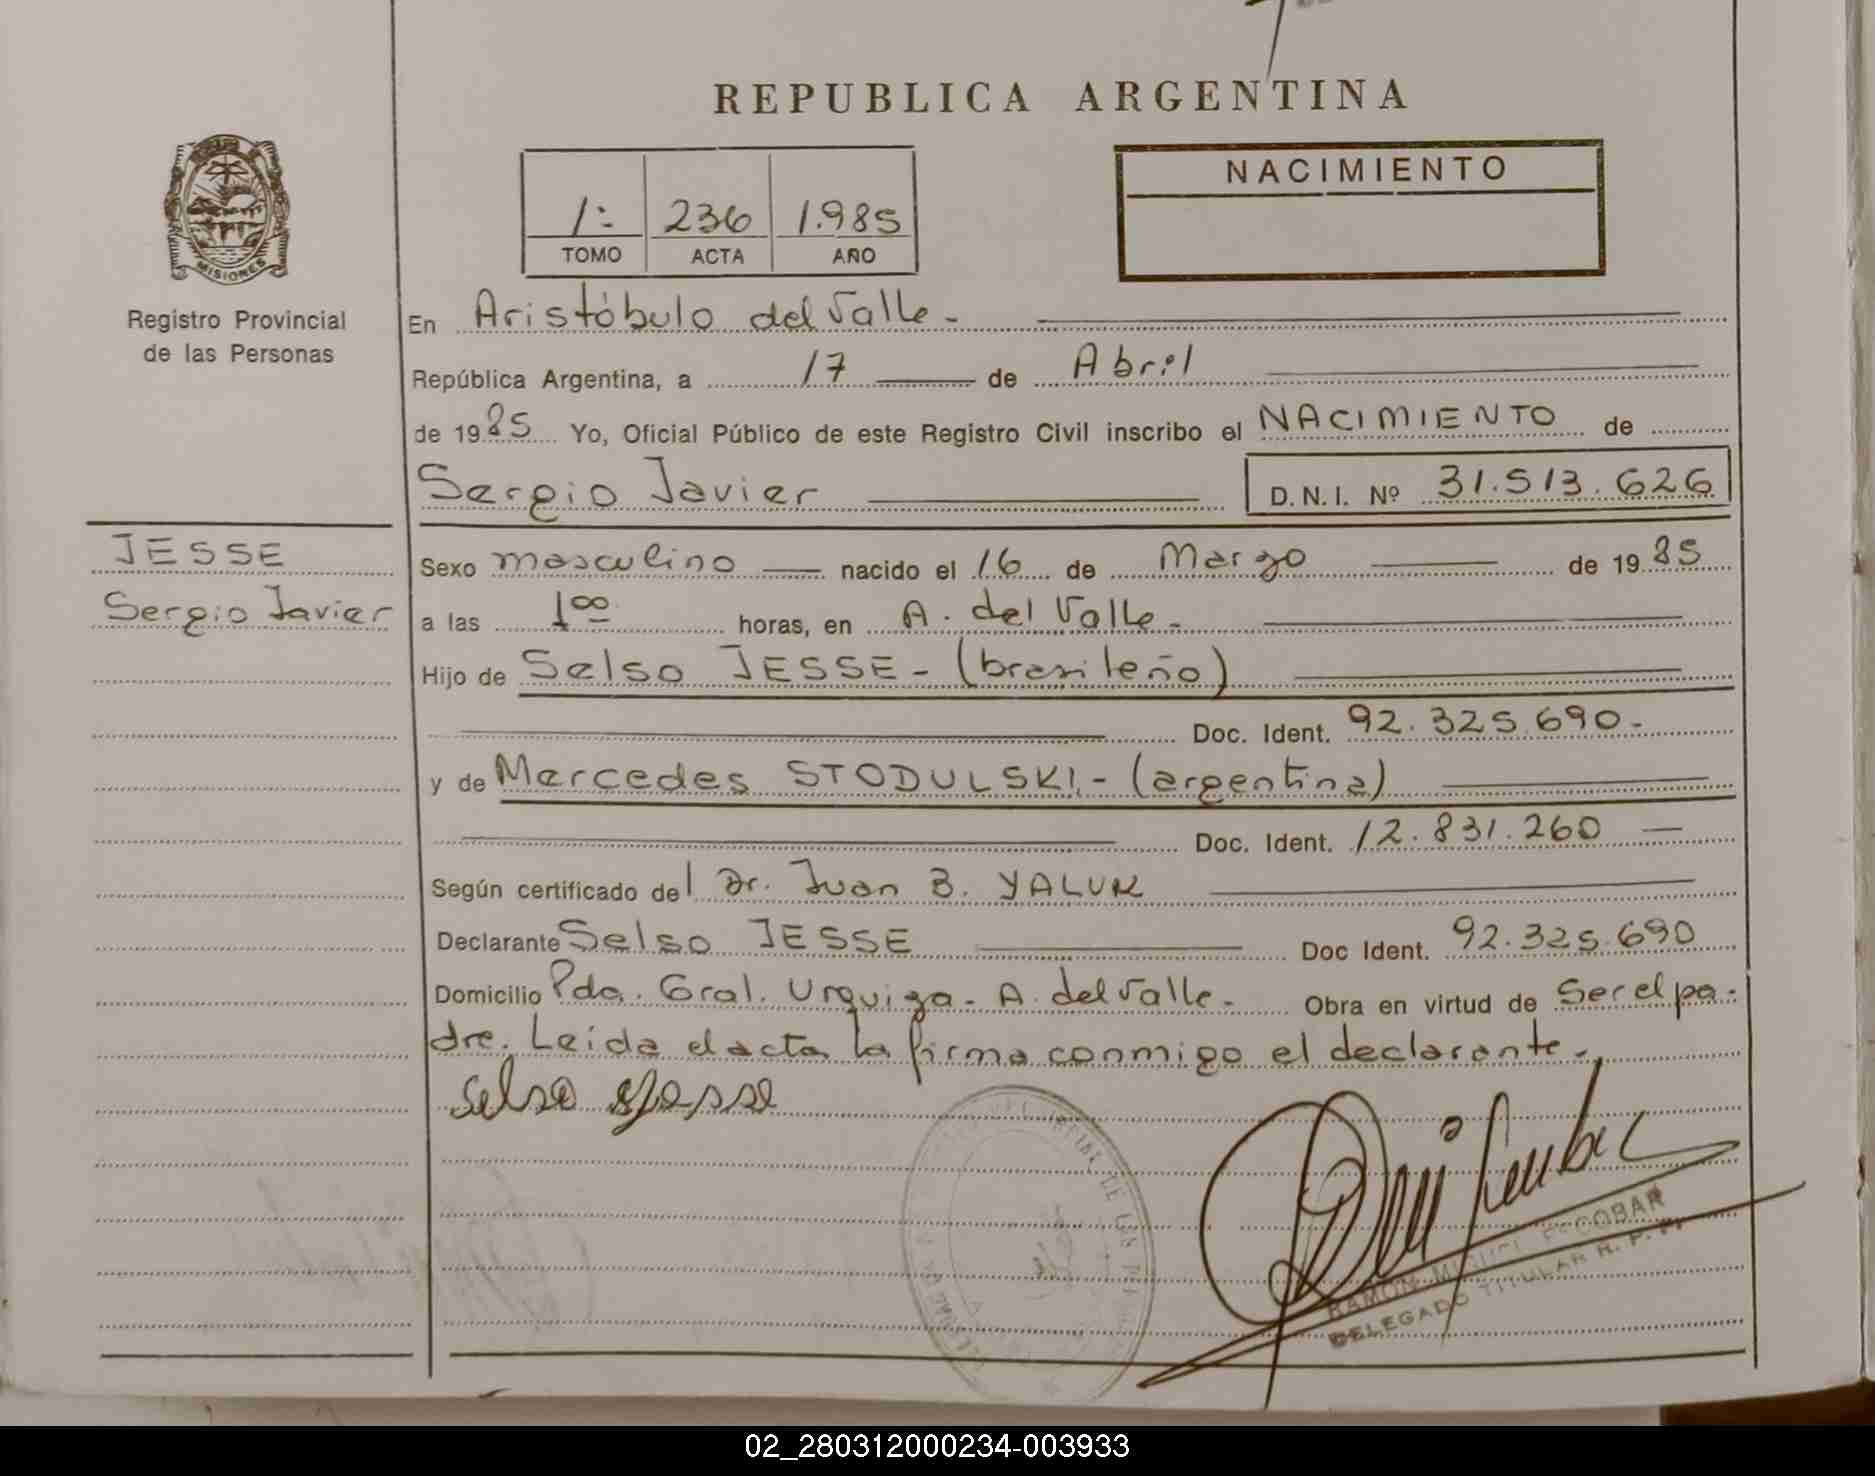 REPUBLICA ARGENTINA
1:- 236 1.985
TOMO ACTA AÑO
NACIMIENTO
MISIONES
Registro Provincial
de las Personas
En Aristóbulo del Valle -
República Argentina, a 17 de Abril
de 1985 Yo, Oficial Público de este Registro Civil inscribo el NACIMIENTO de
Sergio Javier D.N.I. Nº 31.513.626
JESSE
Sergio Javier
Sexo masculino nacido el 16 de Marzo de 1985
a las 1 00 horas, en A. del Valle -
Hijo de Selso JESSE - (brasileño)
Doc. Ident. 92.325.690 -
y de Mercedes STODULSKI - (argentina)
Doc. Ident. 12.831.260 -
Según certificado del Dr. Juan B. YALUK
Declarante Selso JESSE Doc Ident. 92.325.690
Domicilio Pdo. Gral. Urquiza - A. del Valle - Obra en virtud de Ser el pa-
dre. Leida el acta la firma conmigo el declarante -
Selso Jesse
RAMON MIGUEL ESCOBAR
DELEGADO TITULAR R. P. P.
02_280312000234-003933